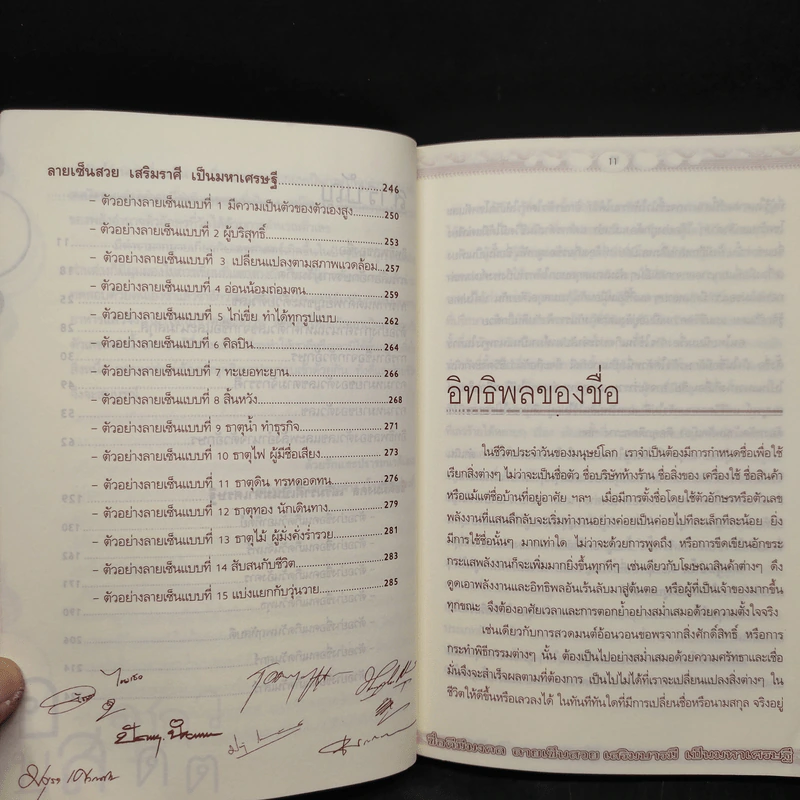 ลายเซ็นสวย เสริมราศี เป็นมหาเศรษฐี..............................246
- ตัวอย่างลายเซ็นแบบที่ 1 มีความเป็นตัวของตัวเองสูง........250
- ตัวอย่างลายเซ็นแบบที่ 2 ผู้บริสุทธิ์..............................253
- ตัวอย่างลายเซ็นแบบที่ 3 เปลี่ยนแปลงตามสภาพแวดล้อม...257
- ตัวอย่างลายเซ็นแบบที่ 4 อ่อนน้อมถ่อมตน....................259
- ตัวอย่างลายเซ็นแบบที่ 5 ไก่เขี่ย ทำได้ทุกรูปแบบ............262
- ตัวอย่างลายเซ็นแบบที่ 6 ศิลปิน..................................264
- ตัวอย่างลายเซ็นแบบที่ 7 ทะเยอทะยาน.........................266
- ตัวอย่างลายเซ็นแบบที่ 8 สิ้นหวัง.................................268
- ตัวอย่างลายเซ็นแบบที่ 9 ธาตุน้ำ ทำธุรกิจ.....................271
- ตัวอย่างลายเซ็นแบบที่ 10 ธาตุไฟ ผู้มีชื่อเสียง................273
- ตัวอย่างลายเซ็นแบบที่ 11 ธาตุดิน ทรหดอดทน..............276
- ตัวอย่างลายเซ็นแบบที่ 12 ธาตุทอง นักเดินทาง..............279
- ตัวอย่างลายเซ็นแบบที่ 13 ธาตุไม้ ผู้มั่งคั่งร่ำรวย............281
- ตัวอย่างลายเซ็นแบบที่ 14 สับสนกับชีวิต.......................283
- ตัวอย่างลายเซ็นแบบที่ 15 แบ่งแยกกับวุ่นวาย................285
11
อิทธิพลของชื่อ
ในชีวิตประจำวันของมนุษย์โลก เราจำเป็นต้องมีการกำหนดชื่อเพื่อใช้
เรียกสิ่งต่างๆ ไม่ว่าจะเป็นชื่อตัว ชื่อบริษัทห้างร้าน ชื่อสิ่งของ เครื่องใช้ ชื่อสินค้า
หรือแม้แต่ชื่อบ้านที่อยู่อาศัย ฯลฯ เมื่อมีการตั้งชื่อโดยใช้ตัวอักษรหรือตัวเลข
พลังงานที่แสนลึกลับจะเริ่มทำงานอย่างค่อยเป็นค่อยไปทีละเล็กทีละน้อย ยิ่ง
มีการใช้ชื่อนั้นๆ มากเท่าใด ไม่ว่าจะด้วยการพูดถึง หรือการขีดเขียนอักขระ
กระแสพลังงานก็จะเพิ่มมากยิ่งขึ้นทุกทีๆ เช่นเดียวกับโฆษณาสินค้าต่างๆ ดึง
ดูดเอาพลังงานและอิทธิพลอันเร้นลับมาสู่ต้นตอ หรือผู้ที่เป็นเจ้าของมากขึ้น
ทุกขณะ จึงต้องอาศัยเวลาและการตอกย้ำอย่างสม่ำเสมอด้วยความตั้งใจจริง
เช่นเดียวกับการสวดมนต์อ้อนวอนขอพรจากสิ่งศักดิ์สิทธิ์ หรือการ
กระทำพิธีกรรมต่างๆ นั้น ต้องเป็นไปอย่างสม่ำเสมอด้วยความศรัทธาและเชื่อ
มั่นจึงจะสำเร็จผลตามที่ต้องการ เป็นไปไม่ได้ที่เราจะเปลี่ยนแปลงสิ่งต่างๆ ใน
ชีวิตให้ดีขึ้นหรือเลวลงได้ ในทันทีทันใดที่มีการเปลี่ยนชื่อหรือนามสกุล จริงอยู่
ชื่อดีมีมงคล ลายเซ็นสวย เสริมบารมี เป็นมหาเศรษฐี